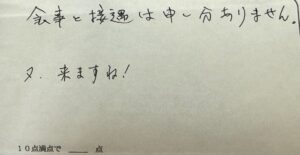 食事と接遇は申し分ありません。
又、来ますね!
10点満点で ____ 点